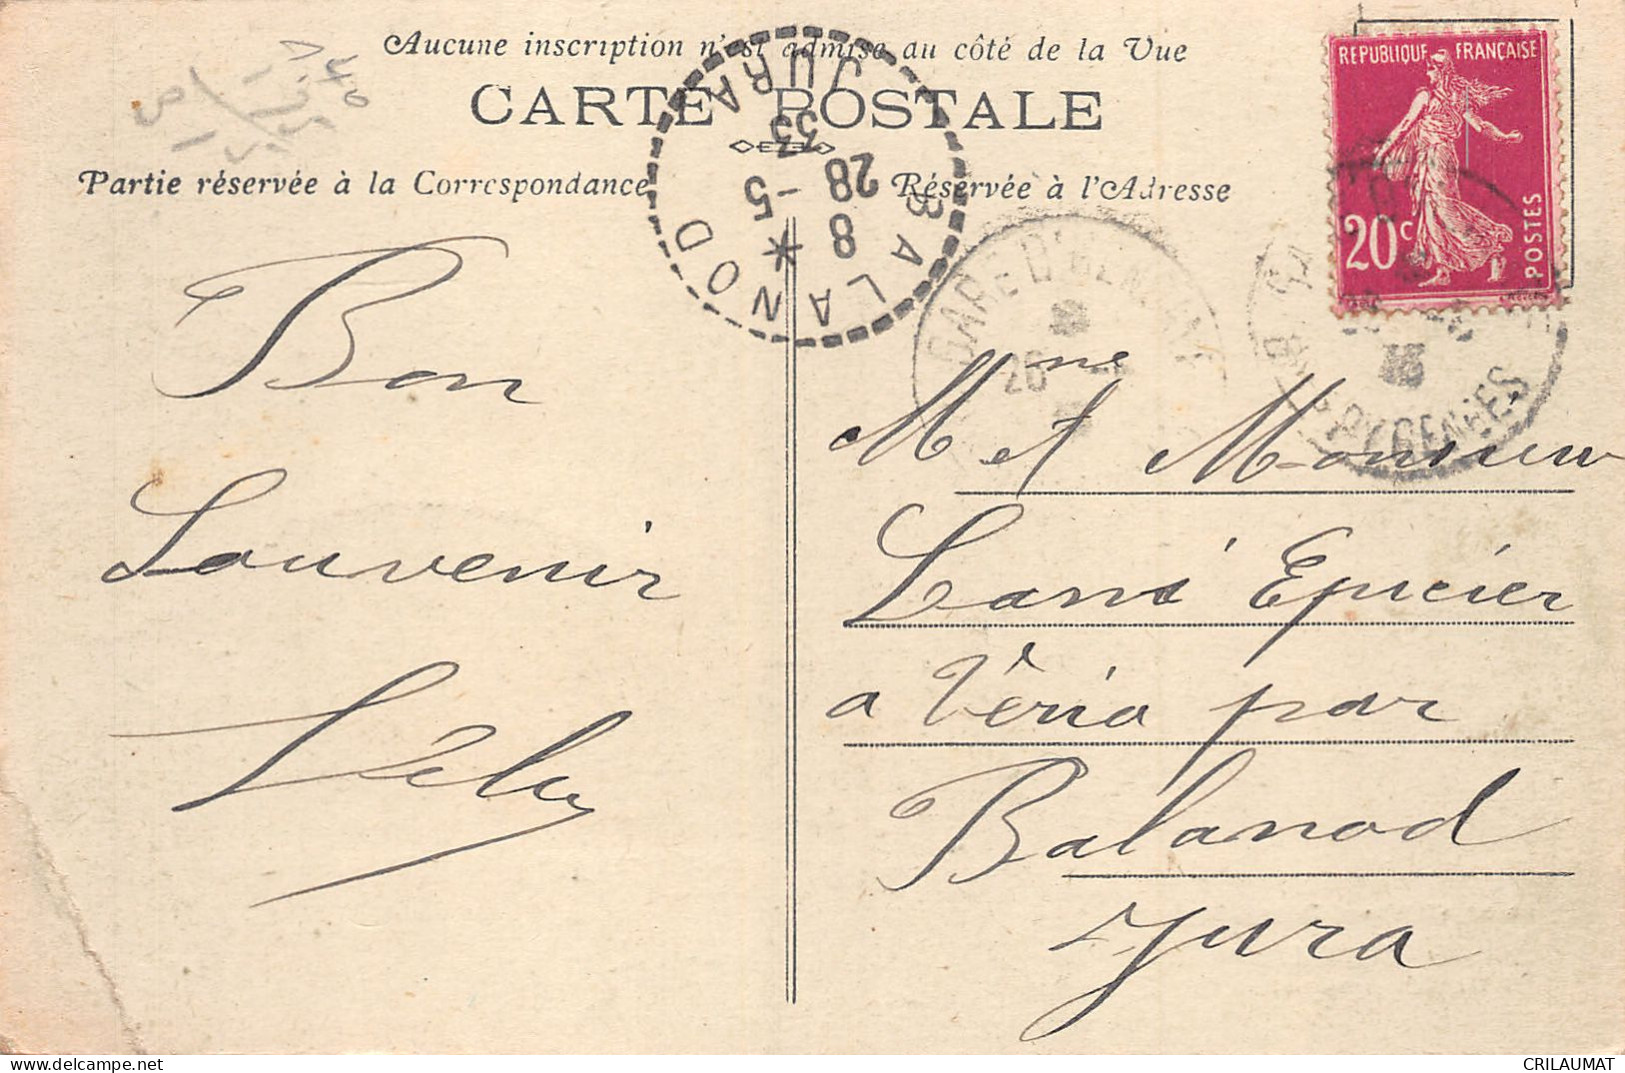 Aucune inscription n'est admise au côté de la Vue
CARTE POSTALE
Partie réservée à la Correspondance
Réservée à l'Adresse
REPUBLIQUE FRANÇAISE
20c
POSTES
BALANOD
JURA
8
28 -5
33
GARE D'
26
PYRENEES
Bon
Souvenir
Mme et Monsieur
Epicier
a Véria par
Balanod
Jura
CRILAUMAT